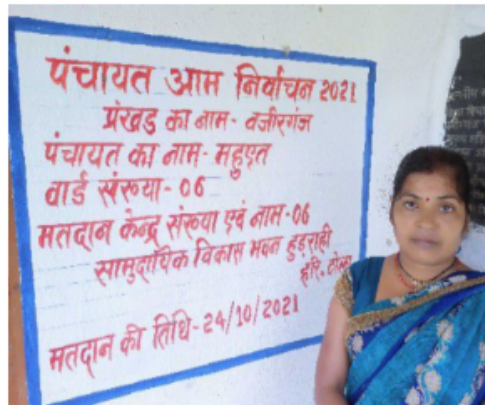 पंचायत आम निर्वाचन 2021
प्रंखड का नाम - वजीरगंज
पंचायत का नाम - महुएत
वार्ड संख्या - 06
मतदान केन्द्र संख्या एवं नाम - 06
सामुदायिक विकास भवन हुड़राही
हरि. टोला
मतदान की तिथि - 24/10/2021